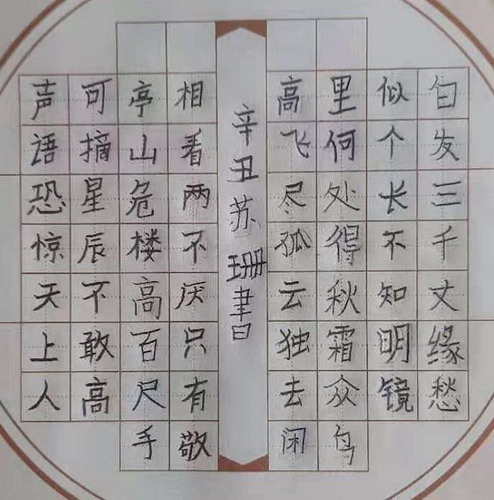 白发三千丈缘愁
似个长不知明镜
里何处得秋霜众鸟
高飞尽孤云独去闲
相看两不厌只有敬
亭山危楼高百尺手
可摘星辰不敢高
声语恐惊天上人
辛丑苏珊書